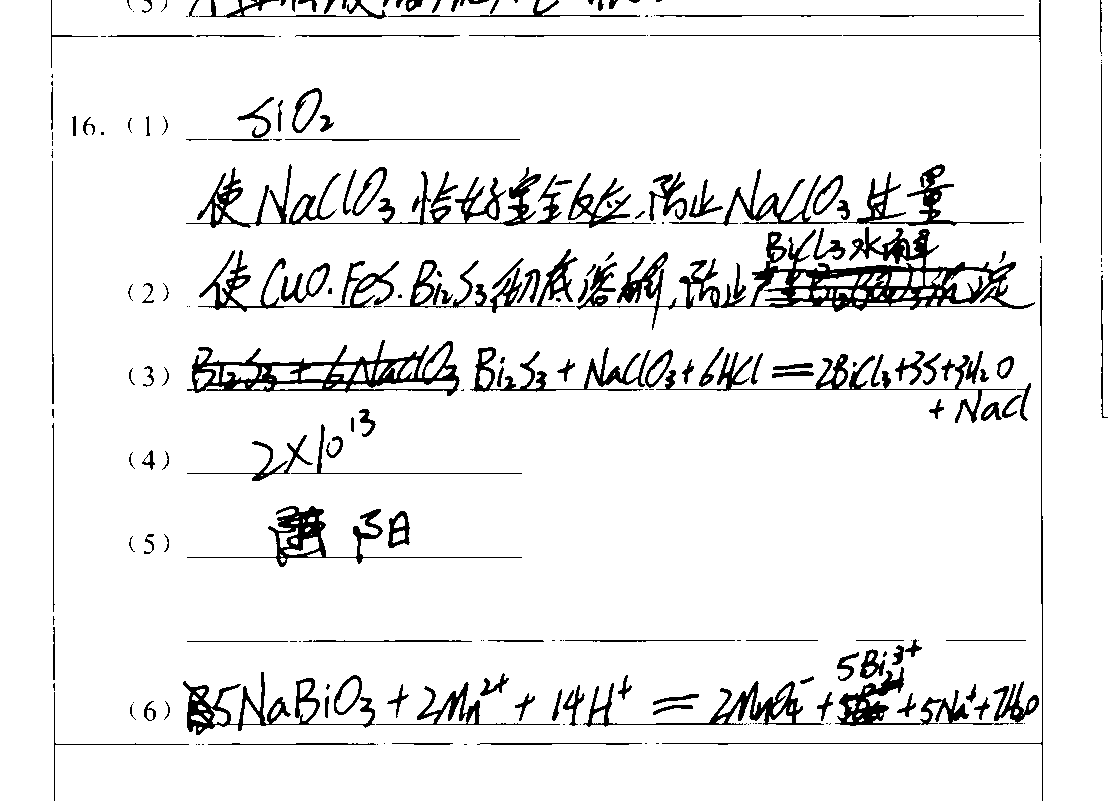 (3)
16. (1) SiO₂
使NaClO₃恰好完全反应,防止NaClO₃过量
BiCl₃水解
(2) 使CuO.FeS.Bi₂S₃彻底溶解,防止
(3) Bi₂S₃+NaClO₃+6HCl=2BiCl₃+3S+3H₂O
+NaCl
(4) 2×10¹³
(5) 阳
5Bi³⁺
(6) 5NaBiO₃+2Mn²⁺+14H⁺=2MnO₄⁻+ +5Na⁺+7H₂O